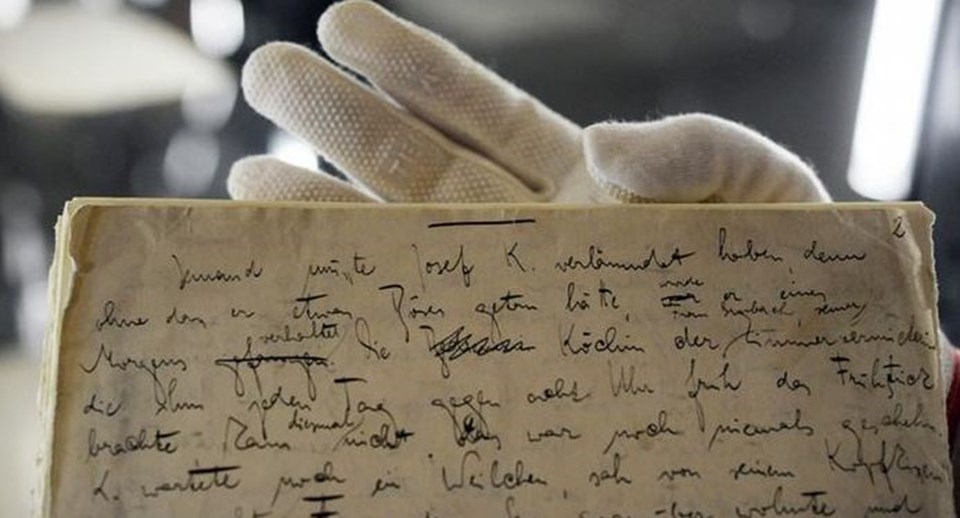 2
Jemand musste Josef K. verläumdet haben, denn
ohne dass er etwas Böses getan hätte, wurde er eines
Frau Grubach, seiner
Morgens gefangen verhaftet. Die Köchin der Zimmervermieterin
die ihm jeden Tag gegen acht Uhr früh das Frühstück
brachte kam diesmal nicht. Das war noch niemals geschehn.
K. wartete noch ein Weilchen, sah von seinem Kopfkissen
gegenüber wohnte und